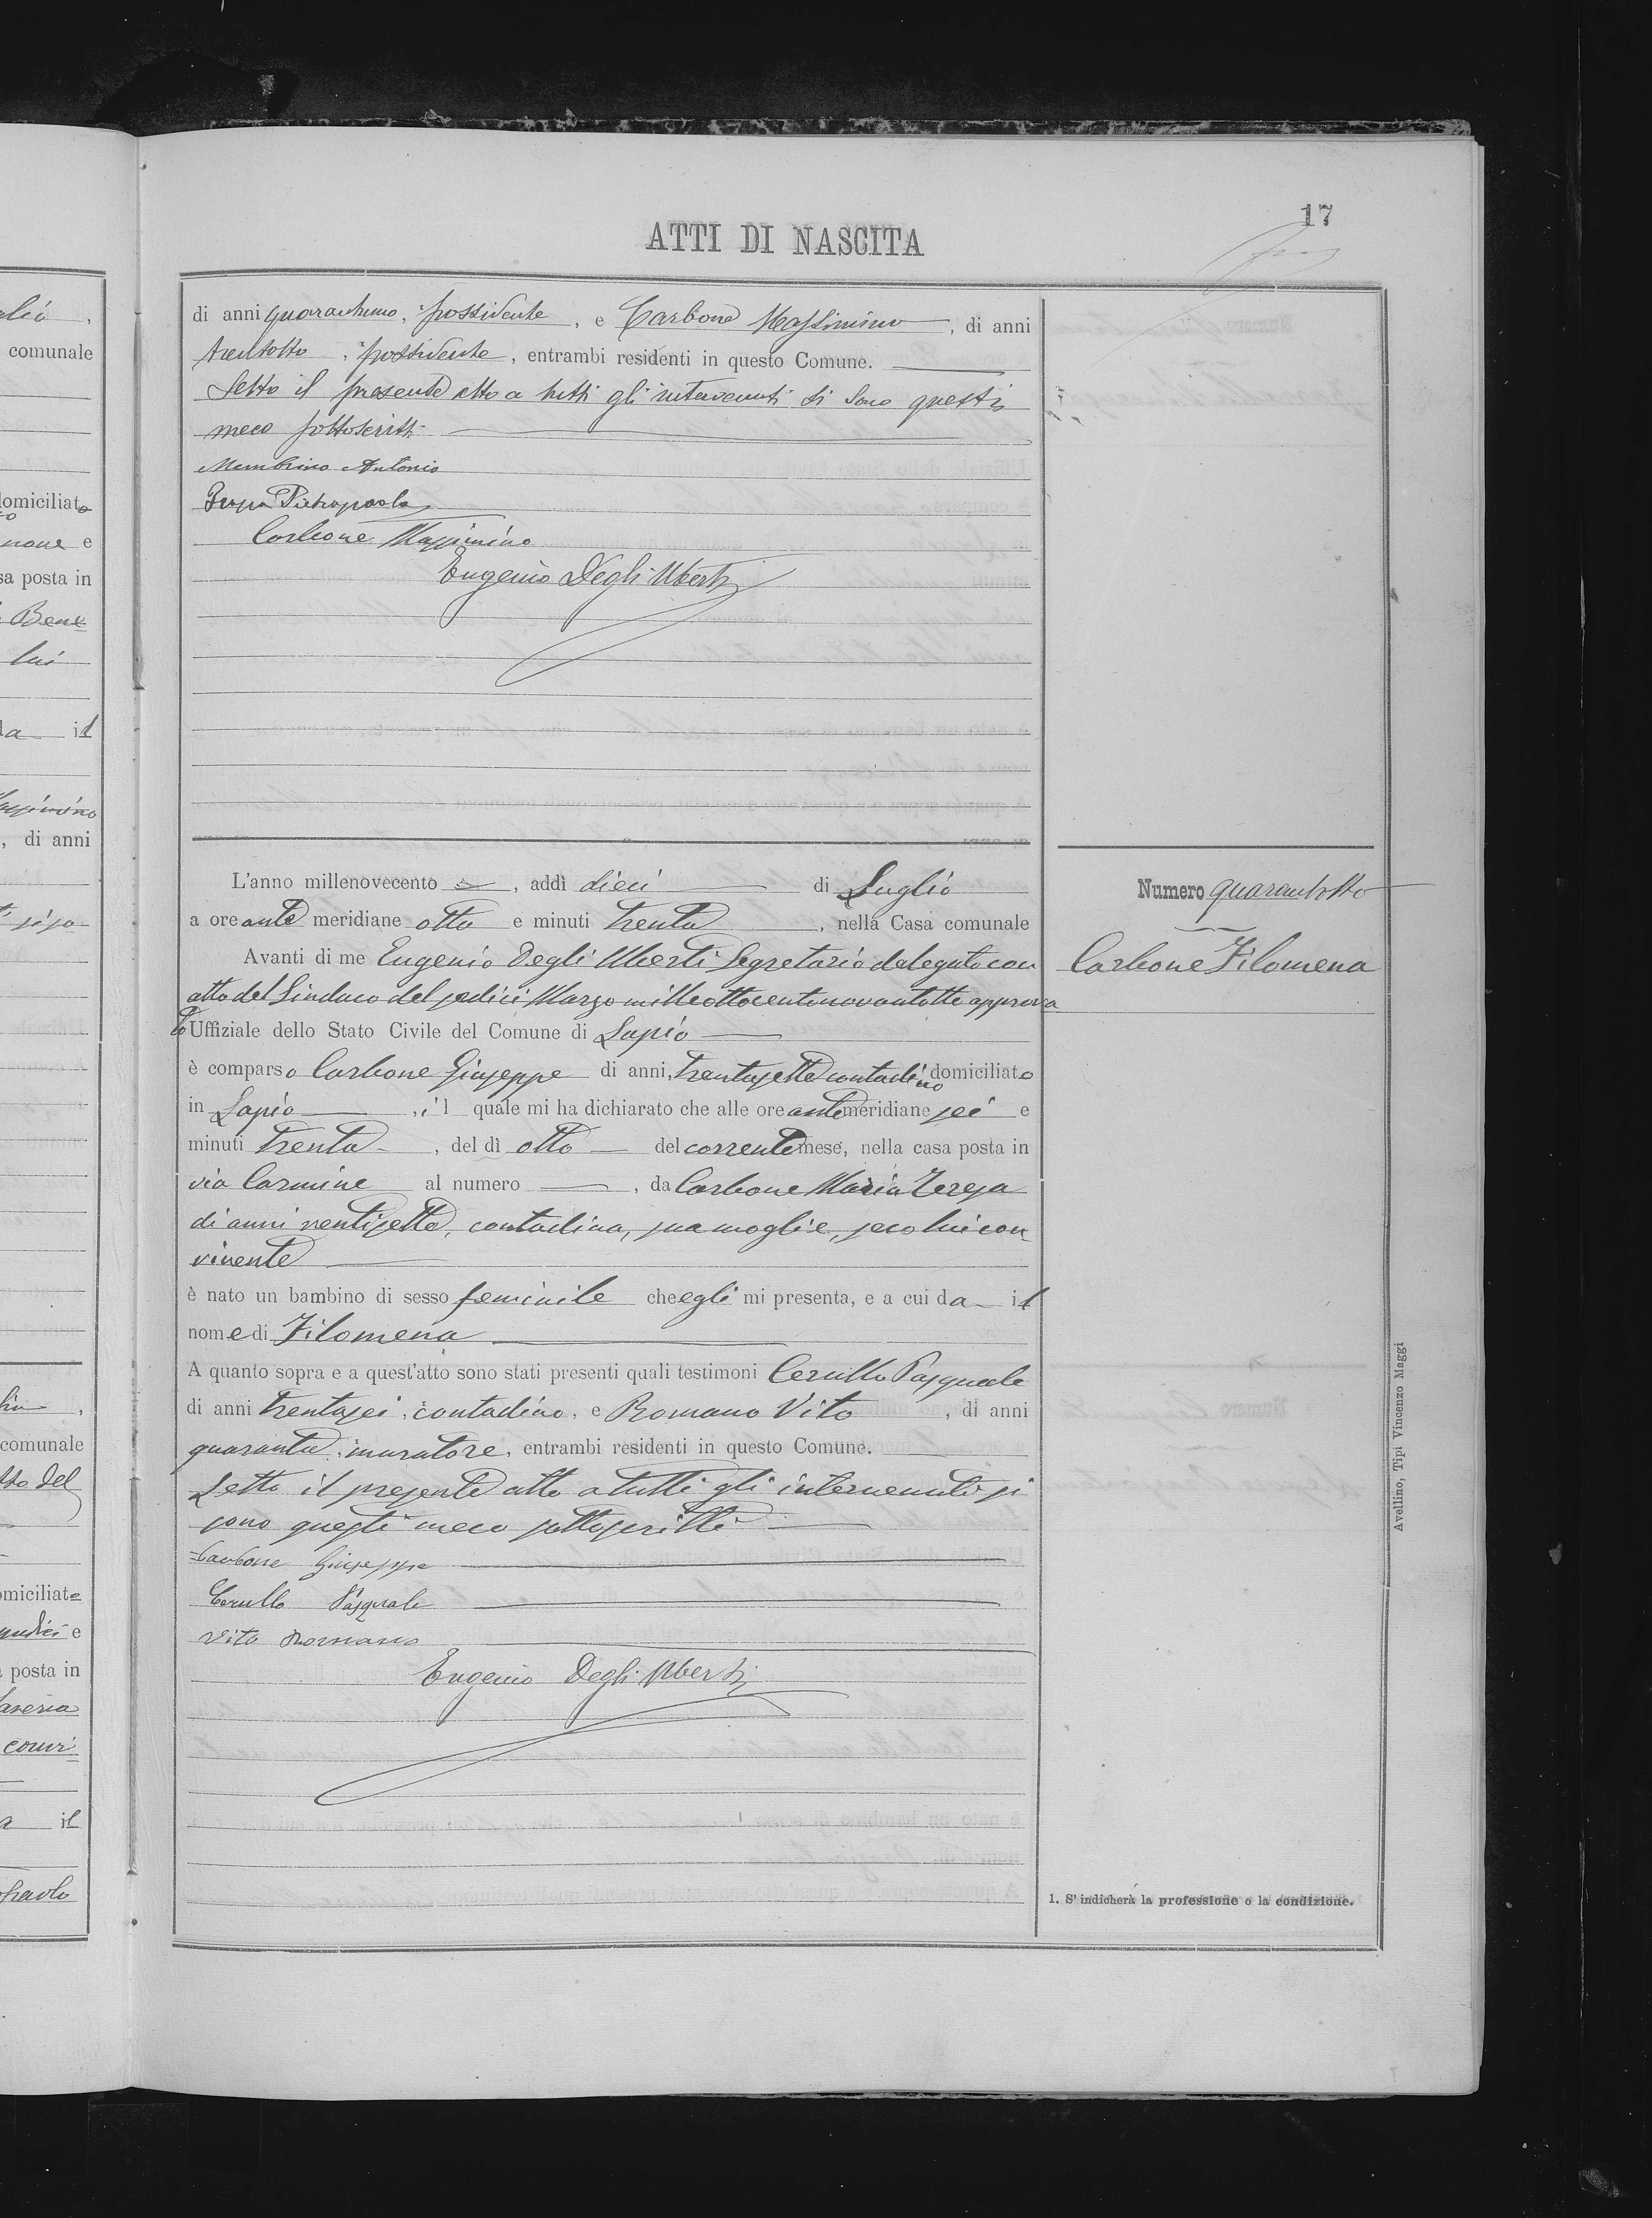 17
ATTI DI NASCITA
di anni quarantuno, possidente, e Carbone Massimino, di anni
trentotto, possidente, entrambi residenti in questo Comune.
Letto il presente atto a tutti gli intervenuti si sono questi
meco sottoscritti
Membrino Antonio
Pietropaolo
Carbone Massimino
Eugenio Degli Uberti
L'anno millenovecento, addì dieci di Luglio
a ore ante meridiane otto e minuti trenta, nella Casa comunale
Avanti di me Eugenio Degli Uberti Segretario delegato con
atto del Sindaco del sedici Marzo milleottocentonovantotto approva
to Uffiziale dello Stato Civile del Comune di Lapio
è comparso Carbone Giuseppe di anni, trentasette contadino domiciliato
in Lapio, il quale mi ha dichiarato che alle ore antemeridiane sei e
minuti trenta, del dì otto del corrente mese, nella casa posta in
via Carmine al numero, da Carbone Maria Teresa
di anni ventisette, contadina, sua moglie, seco lui con
vivente
è nato un bambino di sesso feminile che egli mi presenta, e a cui da il
nome di Filomena
A quanto sopra e a quest'atto sono stati presenti quali testimoni Cerullo Pasquale
di anni trentasei, contadino, e Romano Vito, di anni
quaranta, muratore, entrambi residenti in questo Comune.
Letto il presente atto a tutti gli intervenuti si
sono questi meco sottoscritti
Carbone Giuseppe
Cerullo Pasquale
Vito Romano
Eugenio Degli Uberti
Numero quarantotto
Carbone Filomena
1. S'indicherà la professione o la condizione.
Avellino, Tipi Vincenzo Maggi
comunale
domiciliato
none e
sa posta in
Bene
lui
da il
, di anni
comunale
tto del
omiciliato
e
a posta in
convi
a il